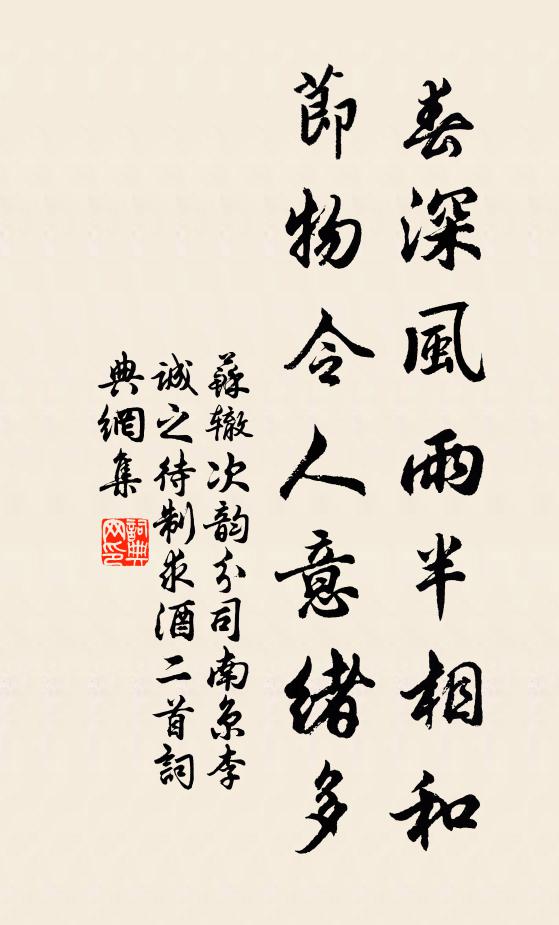 春深風雨半相和
節物令人意緒多
蘇轍次韵分司南京李
誠之待制求酒二首詞
典網集
詞典網印